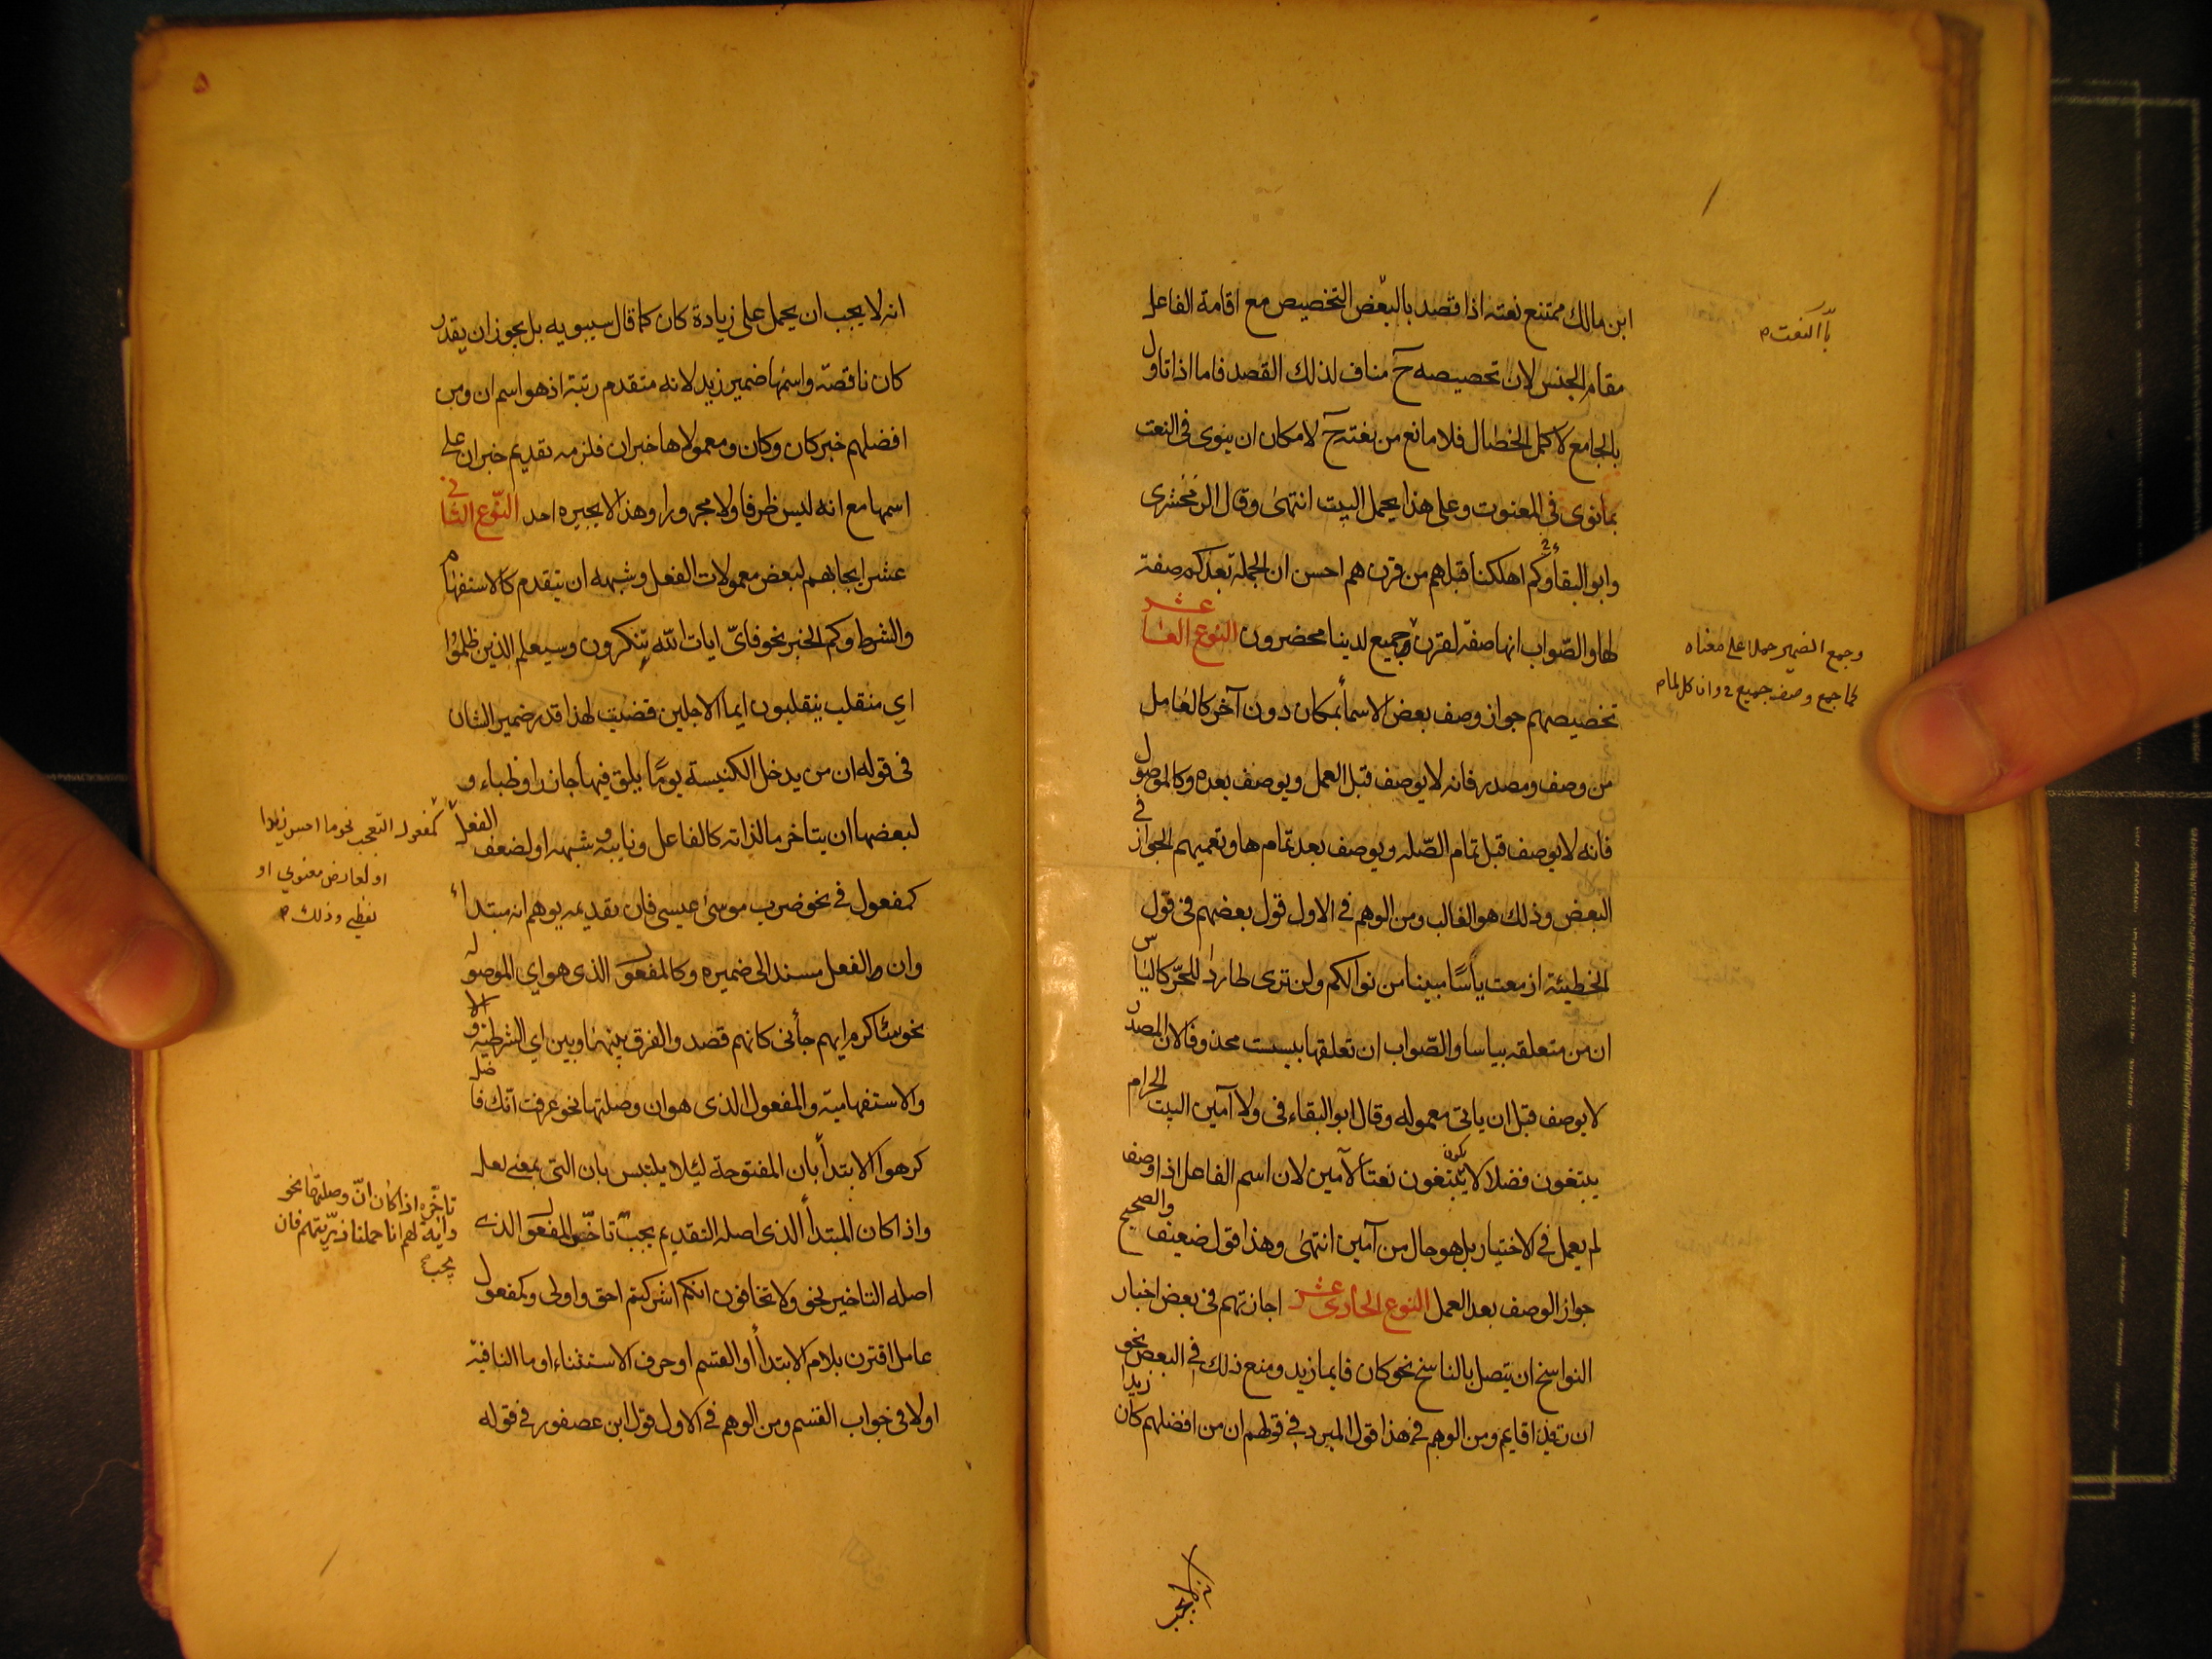 ابن مالك ممتنع نعته اذا قصد بالبعض التخصيص مع اقامة الفاعل
مقام الجنس لان تخصيصه ح مناف لذلك القصد فاما اذا تاول
بالجامع لاكمل الخصال فلا مانع من نعته ح لامكان ان ينوى فى النعت
بما نوى فى المعنوت وعلى هذا يحمل البيت انتهى وقال الزمخشرى
وابو البقأ وكم اهلكنا قبلهم من قرن هم احسن ان الجملة بعد كم صفة
لها والصّواب انها صفة لقرن وجميع لدينا محضرون النوع العاشر
تخصيصهم جواز وصف بعض الاسمأ بمكان دون آخر كالعامل
من وصف ومصدر فانه لا يوصف قبل العمل ويوصف بعده وكالموصول
فانه لا يوصف قبل تمام الصّلة ويوصف بعد تمام ها وتعميهم الجواز فى
البعض وذلك هو الغالب ومن الوهم فى الاول قول بعضهم فى قول
الخطيئة ازمعت يأسًا مبينا من نوالكم ولن ترى طاردا للحرّ كالياس
ان من متعلقه بياسا والصّواب ان تعلقها بيسست محذوفا لان المصدر
لا يوصف قبل ان ياتى معموله وقال ابو البقاء فى ولا آمين البيت الحرام
يبتغون فضلا لا يكون يبتغون نعتا لآمين لان اسم الفاعل اذا وصف
لم يعمل فى الاختيار بل هو حال من آمين انتهى وهذا قول ضعيف والصحيح
جواز الوصف بعد العمل النوع الحادى عشر اجازتهم فى بعض اخبار
النواسخ ان يتصل بالناسخ نحو كان قايما زيد ومنع ذلك فى البعض نحو
ان زيدا قايم ومن الوهم فى هذا قول المبرد فى قولهم ان من افضلهم كان زيدا
انه لا يجب
بأ النعت م
وجمع الضمير حملا على معناه
كما جمع وصف جميع فى وان كل لما م
٥
انه لا يجب ان يحمل على زيادة كان كما قال سيبويه بل يجوز ان يقدر
كان ناقصة واسمها ضمير زيد لانه متقدم رتبة اذ هو اسم ان ومن
افضلهم خبر كان وكان ومعمولاها خبر ان فلزمه تقديم خبر ان على
اسمها مع انه ليس ظرفا ولا مجرورا وهذا لا يجيزه احد النّوع الثانى
عشر ايجابهم لبعض معمولات الفعل وشبهه ان يتقدم كالاستفهام
والشرط وكم الخبر نحو فاىّ ايات اللّه تنكرون وسيعلم الذين ظلموا
اي منقلب ينقلبون ايما الاجلين قضيت لهذا قدر ضمير الشان
فى قوله ان من يدخل الكنيسة يومًا يلق فيها جاذرا وظباء و
لبعضها ان يتاخر ما لذاته كالفاعل ونايبه وشبهه او لضعف الفعل
كمفعول فى نحو ضرب موسى عيسى فان تقديمه يوهم انه مبتدأ
وان الفعل مسند الى ضميره وكالمفعول الذى هو اي الموصوله
نحو سأكرم ايهم جأنى كانهم قصدوا الفرق بينها وبين اي الشرطية
والاستفهامية والمفعول الذى هو ان وصلتها نحو عرفت انك فاضل
كرهوا الابتدأ بأن المفتوحة ليلا يلتبس بان التى بمعنى لعل
واذا كان المبتدأ الذى اصله التقديم يجب تاخير المفعول الذى
اصله التاخير نحو ولا تخافون انكم اشركتم احق واولى وكمفعول
عامل اقترن بلام الابتدأ او القسم او حرف الاستثناء او ما النافية
او لا فى جواب القسم ومن الوهم فى الاول قول ابن عصفور فى قوله
كمفعول التعجب نحو ما احسن زيدا
او لعارض معنوي او
لفظي وذلك م
تاخّره اذا كان انّ وصلتها نحو
وآية لهم انا حملنا ذرّيّتهم فان
يجب